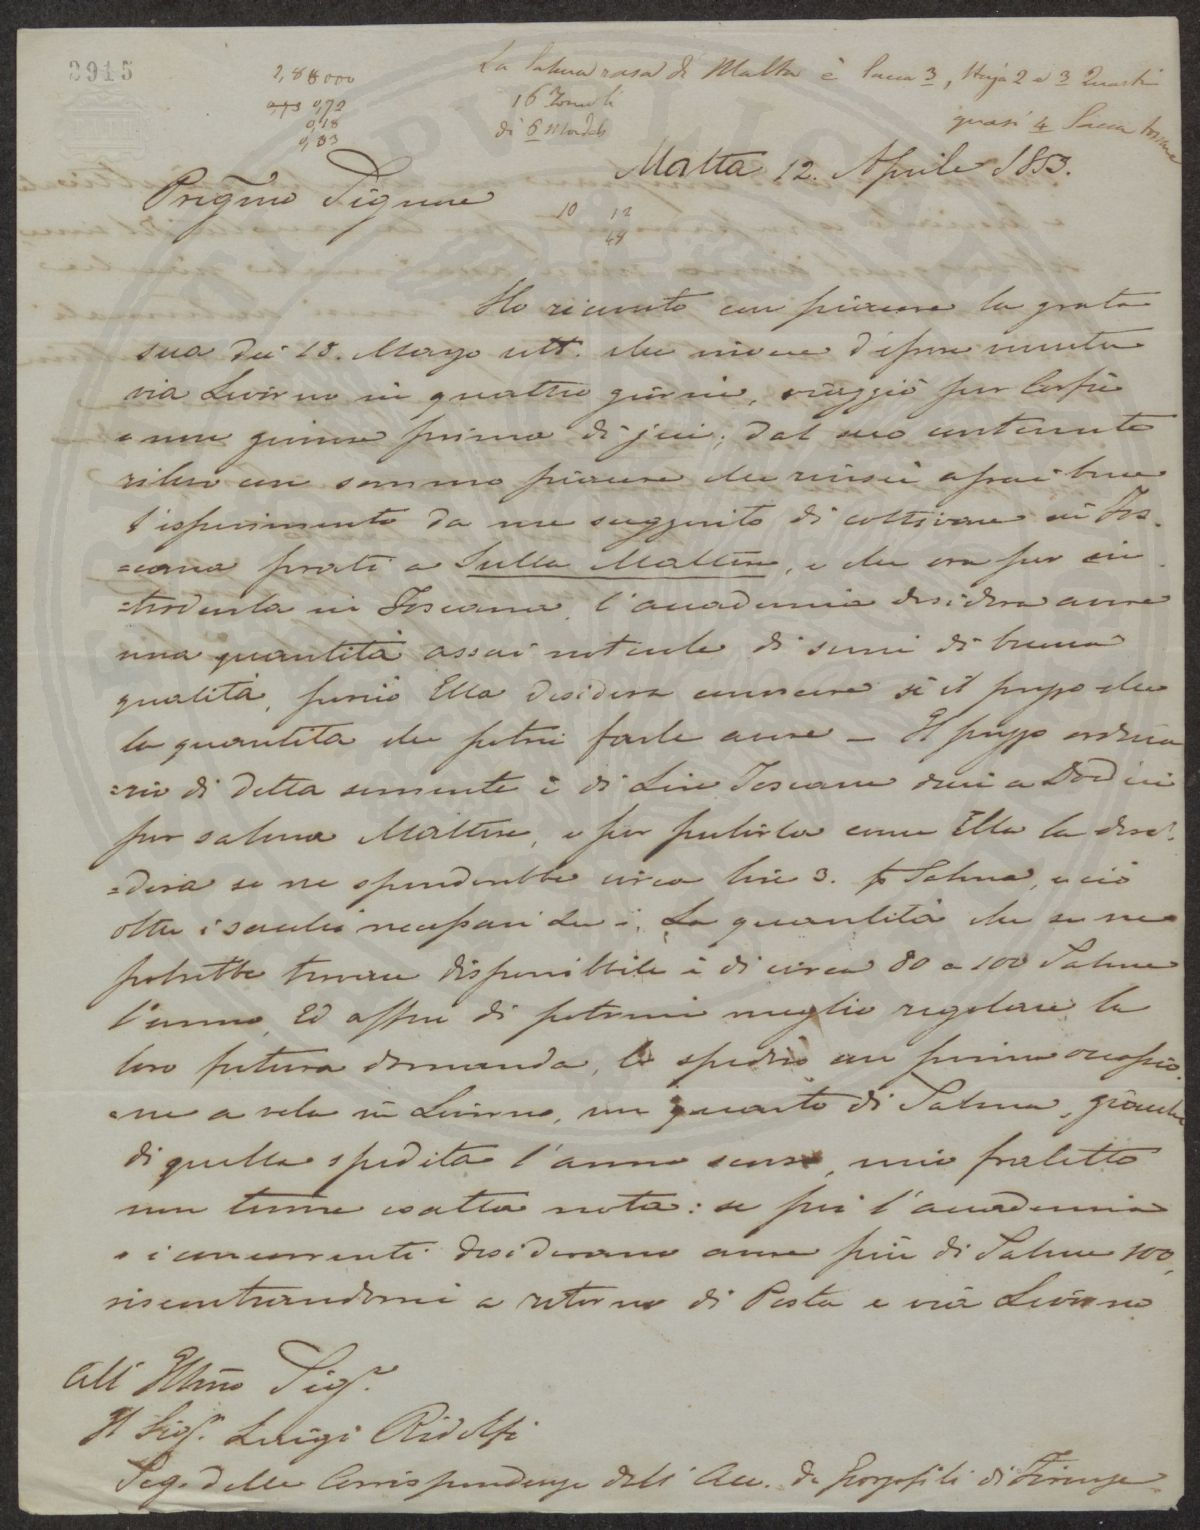 3915
2,88000
973 0,72
0,18
0,33
La Salma rasa di Malta è Sacca 3, Staja 2 e 3 Quarti
16 Tomoli
di 6 Mondelli
quasi 4 Sacca toscane
Malta 12. Aprile 1853.
Pregmo Signore
10 12
48
Ho ricevuto con piacere la grata
sua dei 18. Marzo ult. che invece d'essere venuta
via Livorno in quattro giorni, viaggiò per Corfù
e non giunse prima di jeri; dal suo contenuto
rilevo con sommo piacere che riuscì assai bene
l'esperimento da me suggerito di coltivare in Tos-
=cana prati a Sulla Maltese, e che ora per in-
=trodurla in Toscana, l'accademia desidera avere
una quantità assai notevole di semi di buona
qualità, perciò Ella desidera conoscere sì il prezzo che
la quantità che potrei farle avere – Il prezzo ordina
=rio di detta semente è di Lire Toscane dieci a Dodici
per salma Maltese, e per pulirla come Ella la desi-
=dera se ne spenderebbe circa lire 3. p Salma, e ciò
oltre i sacchi necessari La quantità che se ne
potrebbe trovare disponibile è di circa 80 a 100 Salme
l'anno, Ed affine di potermi meglio regolare la
loro futura domanda, le spedirò con prima occasio-
=ne a vela in Livorno, un quarto di Salma, giacchè
di quella spedita l'anno scorso, mio fratello
non tenne esatta nota: se poi l'accademia
o i concorrenti desiderano avere più di Salme 100,
riscontrandomi a ritorno di Posta e via Livorno
All' Illmo Sigr.
Il Sigr. Luigi Ridolfi
Seg. delle Corrispondenze dell' Acc. de Georgofili di Firenze